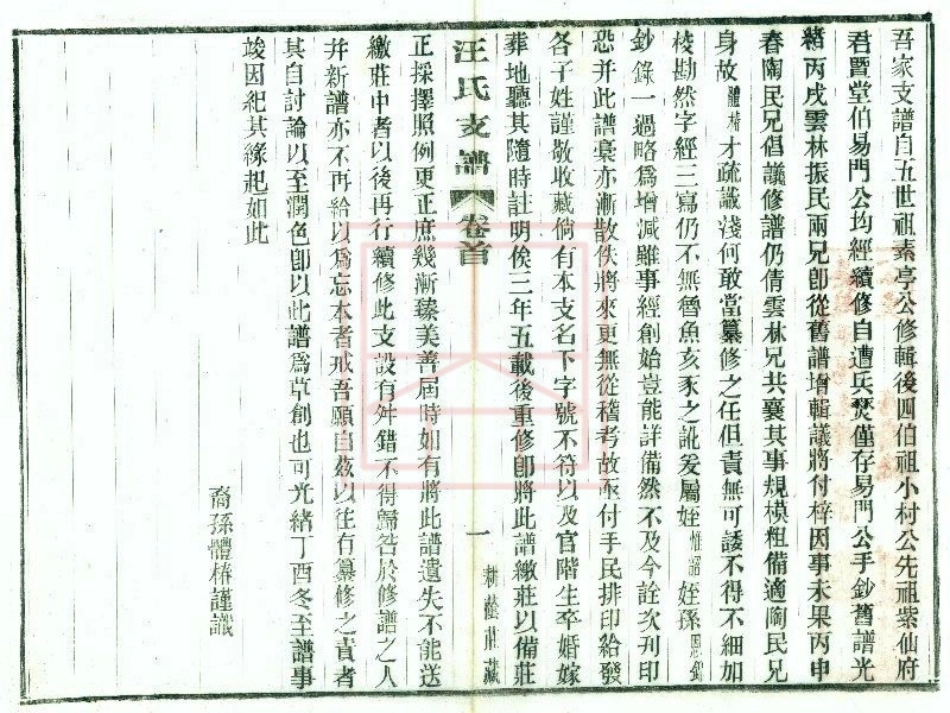 吾家支譜自五世祖素亭公修輯後四伯祖小村公先祖紫仙府
君暨堂伯易門公均經續修自遭兵燹僅存易門公手鈔舊譜光
緒丙戌雲林振民兩兄卽從舊譜增輯議將付梓因事未果丙申
春陶民兄倡議修譜仍倩雲林兄共襄其事規模粗備適陶民兄
身故體椿才疏識淺何敢當纂修之任但責無可諉不得不細加
校勘然字經三寫仍不無魯魚亥豕之訛爰屬姪惟韶姪孫恩
鈔錄一過略爲增減雖事經創始豈能詳備然不及今詮次刋印
恐并此譜稾亦漸散佚將來更無從稽考故亟付手民排印給發
各子姓謹敬收藏倘有本支名下字號不符以及官階生卒婚嫁
葬地聽其隨時註明俟三年五載後重修卽將此譜繳莊以備莊
汪氏支譜 卷首 一 耕蔭莊藏
正採擇照例更正庶幾漸臻美善屆時如有將此譜遺失不能送
繳莊中者以後再行續修此支設有舛錯不得歸咎於修譜之人
幷新譜亦不再給以爲忘本者戒吾願自茲以往有纂修之責者
其自討論以至潤色卽以此譜爲草創也可光緒丁酉冬至譜事
竣因紀其緣起如此
裔孫體椿謹識